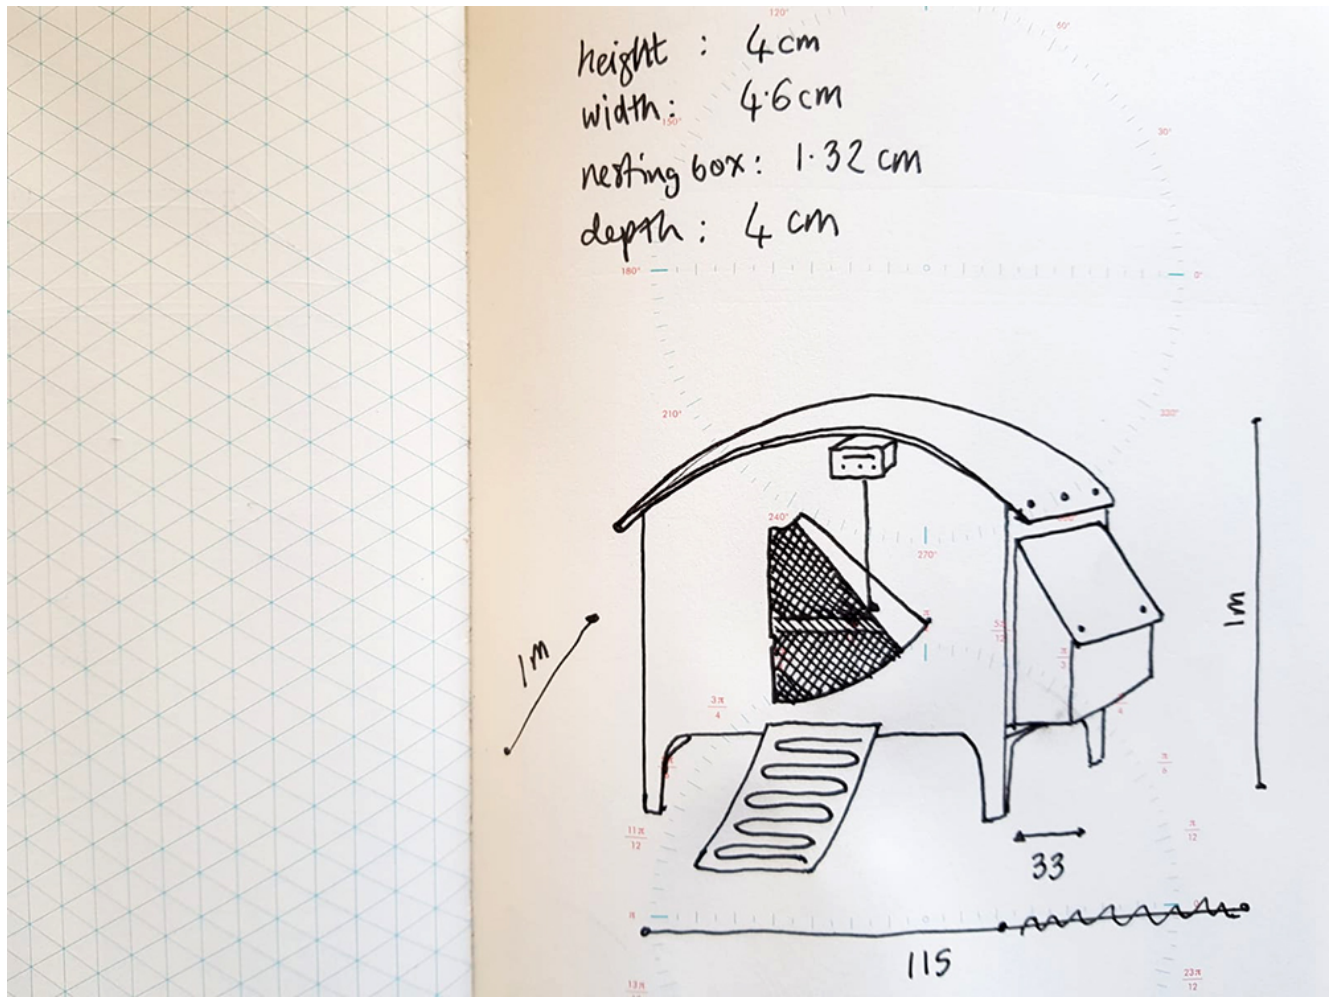 height : 4cm
width: 4.6cm
nesting box: 1.32 cm
depth: 4 cm
120°
60°
150°
30°
180°
0°
210°
330°
240°
270°
1m
1m
3π/4
π/3
π/6
11π/12
π/12
33
π
115
23π/12
13π